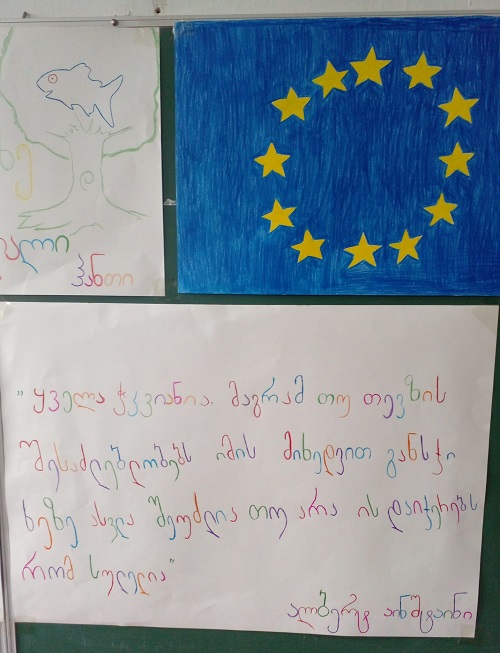 ხე
ალი
ჰანთი
"ყველა ჭკვიანია. მაგრამ თუ თევზის
შესაძლებლობებს იმის მიხედვით განსჯი
ხეზე ასვლა შეუძლია თუ არა ის დაიჯერებს
რომ სულელია"
ალბერტ აინშტაინი